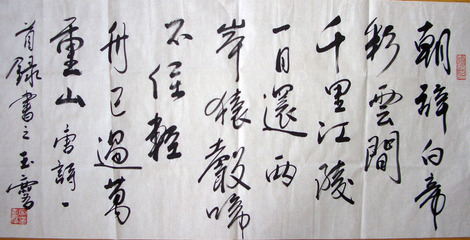 朝辞白帝
彩雲間
千里江陵
一日還兩
岸猿聲啼
不住輕
舟已過萬
重山唐詩一
首録書之玉